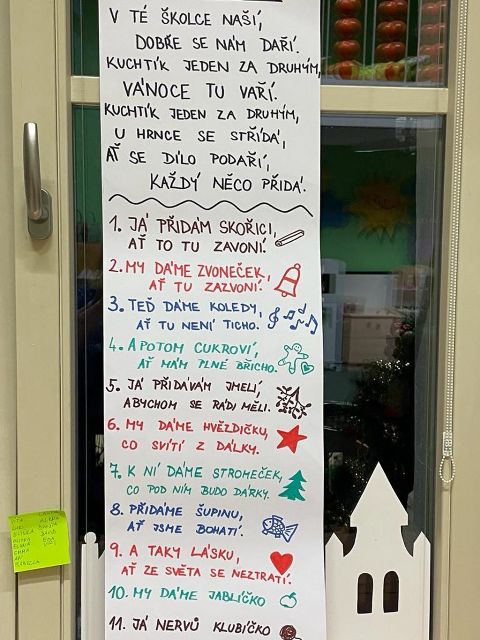 V TÉ ŠKOLCE NAŠÍ,
DOBŘE SE NÁM DAŘÍ.
KUCHTÍK JEDEN ZA DRUHÝM,
VÁNOCE TU VAŘÍ.
KUCHTÍK JEDEN ZA DRUHÝM,
U HRNCE SE STŘÍDÁ,
AŤ SE DÍLO PODAŘÍ,
KAŽDÝ NĚCO PŘIDÁ.
1. JÁ PŘIDÁM SKOŘICI,
AŤ TO TU ZAVONÍ.
2. MY DÁME ZVONEČEK,
AŤ TU ZAZVONÍ.
3. TEĎ DÁME KOLEDY,
AŤ TU NENÍ TICHO.
4. A POTOM CUKROVÍ,
AŤ MÁM PLNÉ BŘICHO.
5. JÁ PŘIDÁVÁM JMELÍ,
ABYCHOM SE RÁDI MĚLI.
6. MY DÁME HVĚZDIČKU,
CO SVÍTÍ Z DÁLKY.
7. K NÍ DÁME STROMEČEK,
CO POD NÍM BUDO DÁRKY.
8. PŘIDÁME ŠUPINU,
AŤ JSME BOHATÍ.
9. A TAKY LÁSKU,
AŤ ZE SVĚTA SE NEZTRATÍ.
10. MY DÁME JABLÍČKO
11. JÁ NERVŮ KLUBÍČKO